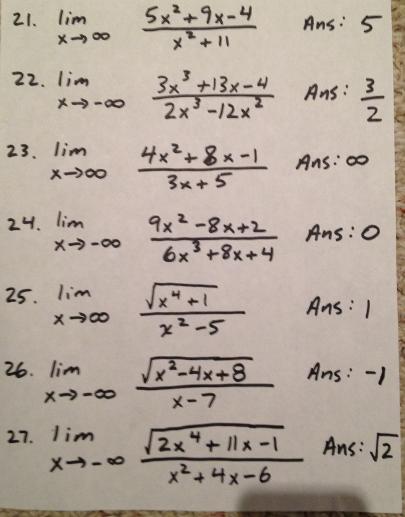 21. lim x→∞ (5x² + 9x - 4)/(x² + 11) Ans: 5
22. lim x→-∞ (3x³ + 13x - 4)/(2x³ - 12x²) Ans: 3/2
23. lim x→∞ (4x² + 8x - 1)/(3x + 5) Ans: ∞
24. lim x→-∞ (9x² - 8x + 2)/(6x³ + 8x + 4) Ans: 0
25. lim x→∞ √(x⁴ + 1)/(x² - 5) Ans: 1
26. lim x→-∞ √(x² - 4x + 8)/(x - 7) Ans: -1
27. lim x→-∞ √(2x⁴ + 11x - 1)/(x² + 4x - 6) Ans: √2